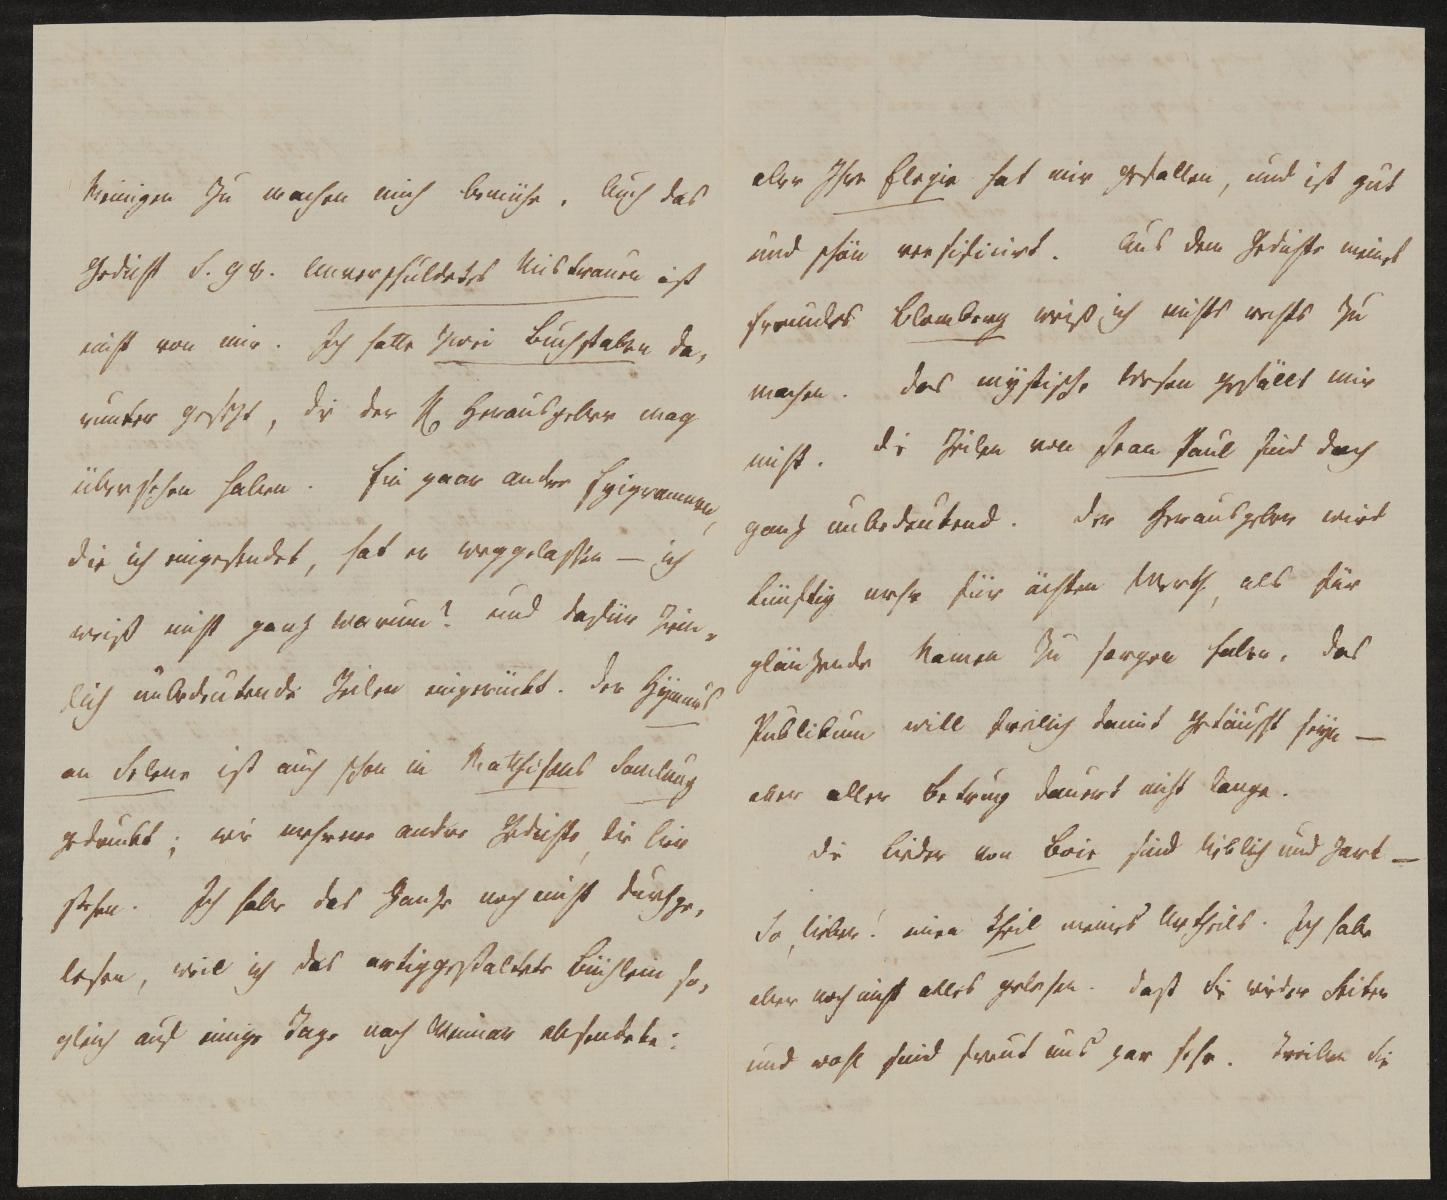 Meinigen zu machen mich bemühe. Auch das
Gedicht S. 98. Unverschuldetes Mistrauen ist
nicht von mir. Ich hatte zwei Buchstaben da-
runter gesezt, die der Herausgeber mag
übersehen haben. Ein paar andre Epigrammen,
die ich eingesendet, hat er weggelaßen — ich
weiß nicht ganz warum? und dafür ziem-
lich unbedeutende Zeilen eingerückt. Der Hÿmnus
an Selene ist auch schon in Matthisons Samlung
gedruckt; wie mehrere andre Gedichte, die hier
stehen. Ich habe das Ganze noch nicht durchge-
lesen, weil ich das artiggestaltete Büchlein so-
gleich auf einige Tage nach Weimar absendete:
aber Ihre Elegie hat mir gefallen, und ist gut
und schön versificirt. Aus dem Gedichte meines
Freundes Blomberg weiß ich nichts rechts zu
machen. Das mÿstische Wesen gefällt mir
nicht. Die Zeilen von Jean Paul sind doch
ganz unbedeutend. Der Herausgeber wird
künftig mehr für ächten Werth, als für
glänzende Namen zu sorgen haben. Das
Publikum will freilich damit getäuscht seÿn —
aber aller Betrug dauert nicht lange.
Die Lieder von Boie sind lieblich und zart —
So, lieber! einen Theil meines Urtheils. Ich habe
aber noch nicht alles gelesen. Daß Sie wieder heiter
und wohl sind freut uns gar sehr. Treiben Sie